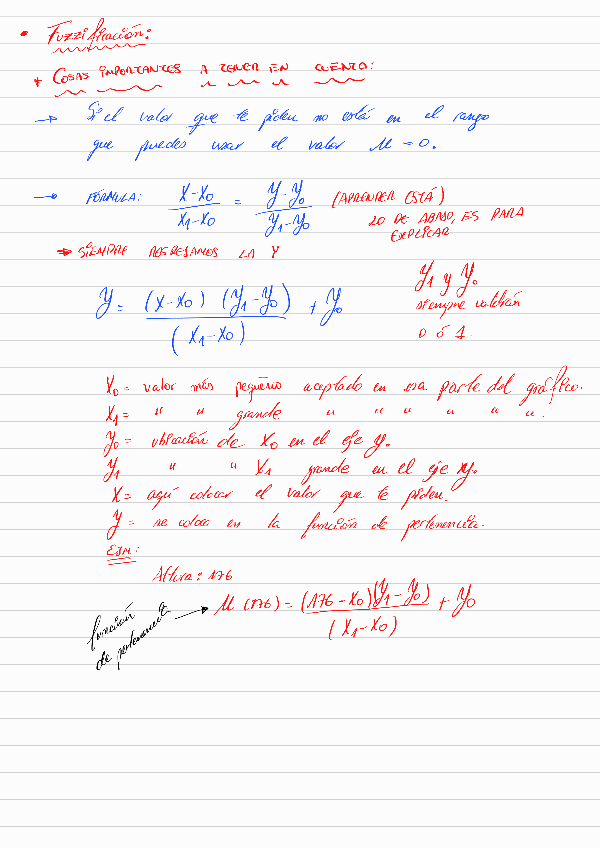 • Fuzzificación:
* COSAS IMPORTANTES A TENER EN CUENTA:
→ Si el valor que te piden no está en el rango
que puedes usar el valor µ = 0.
→ FÓRMULA: (X-X0)/(X1-X0) = (Y-Y0)/(Y1-Y0) (APRENDER ESTÁ)
LO DE ABAJO, ES PARA
EXPLICAR
→ SIEMPRE DESPEJAMOS LA Y
Y = (X-X0) (Y1-Y0) / (X1-X0) + Y0
Y1 y Y0
siempre valdrán
0 ó 1.
X0 = valor más pequeño aceptado en esa parte del gráfico.
X1 = " " grande " " " " " ".
Y0 = ubicación de X0 en el eje y.
Y1 " " X1 grande en el eje y.
X = aquí colocar el valor que te piden.
Y = se coloca en la función de pertenencia.
EJM:
Altura: 176
µ (176) = (176-X0)(Y1-Y0) / (X1-X0) + Y0
función
de pertenencia